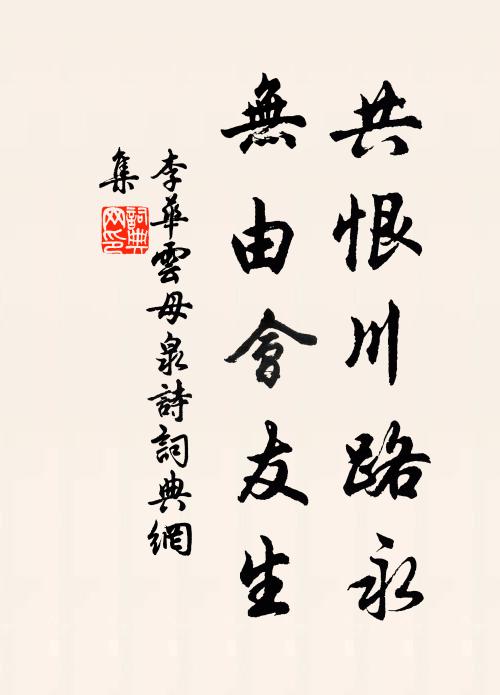 共恨川路永
無由會友生
李華雲母泉詩詞典網
集
詞典
网印